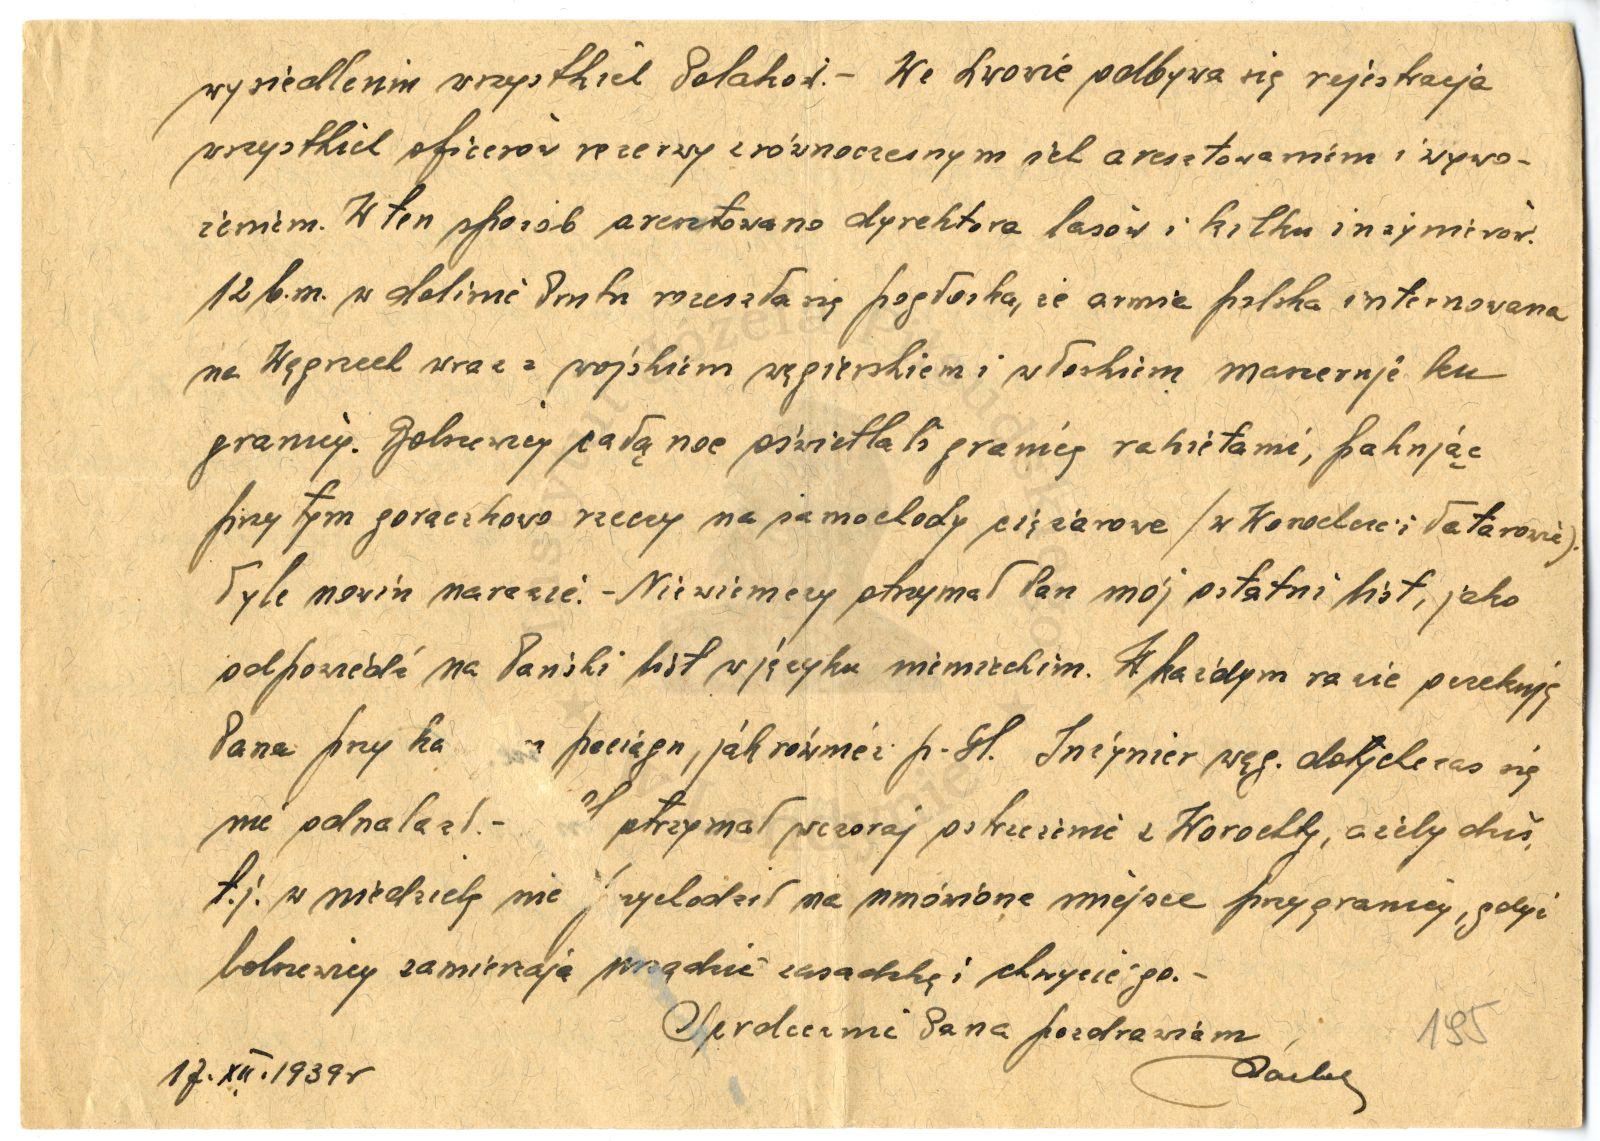 wysiedleniu wszystkich Polaków. – We Lwowie odbywa się rejestracja
wszystkich oficerów rezerwy z równoczesnym ich aresztowaniem i wywo-
żeniem. W ten sposób aresztowano dyrektora lasów i kilku inżynierów.
12 b.m. w dolinie Prutu rozeszła się pogłoska, że armia polska internowana
na Węgrzech wraz z wojskiem węgierskiem i włoskiem maszeruje ku
granicy. Bolszewicy całą noc oświetlali granicę rakietami, pakując
przytym gorączkowo rzeczy na samochody ciężarowe /w Worochcie i Tatarowie).
Tyle nowin narazie. – Nie wiem czy otrzymał Pan mój ostatni list, jako
odpowiedź na Pański list w języku niemieckim. W każdym razie oczekuję
Pana przy pociągu, jak również p. Gl. Inżynier węg. dotychczas się
nie odnalazł. – otrzymał wczoraj ostrzeżenie z Worochty, ażeby dziś,
t.j. w niedzielę nie wychodził na umówione miejsce przy granicy, gdyż
bolszewicy zamierzają urządzić zasadzkę i chwycić go. –
Serdecznie Pana pozdrawiam
17.XII.1939 r
195
Instytut Józefa Piłsudskiego
w Londynie